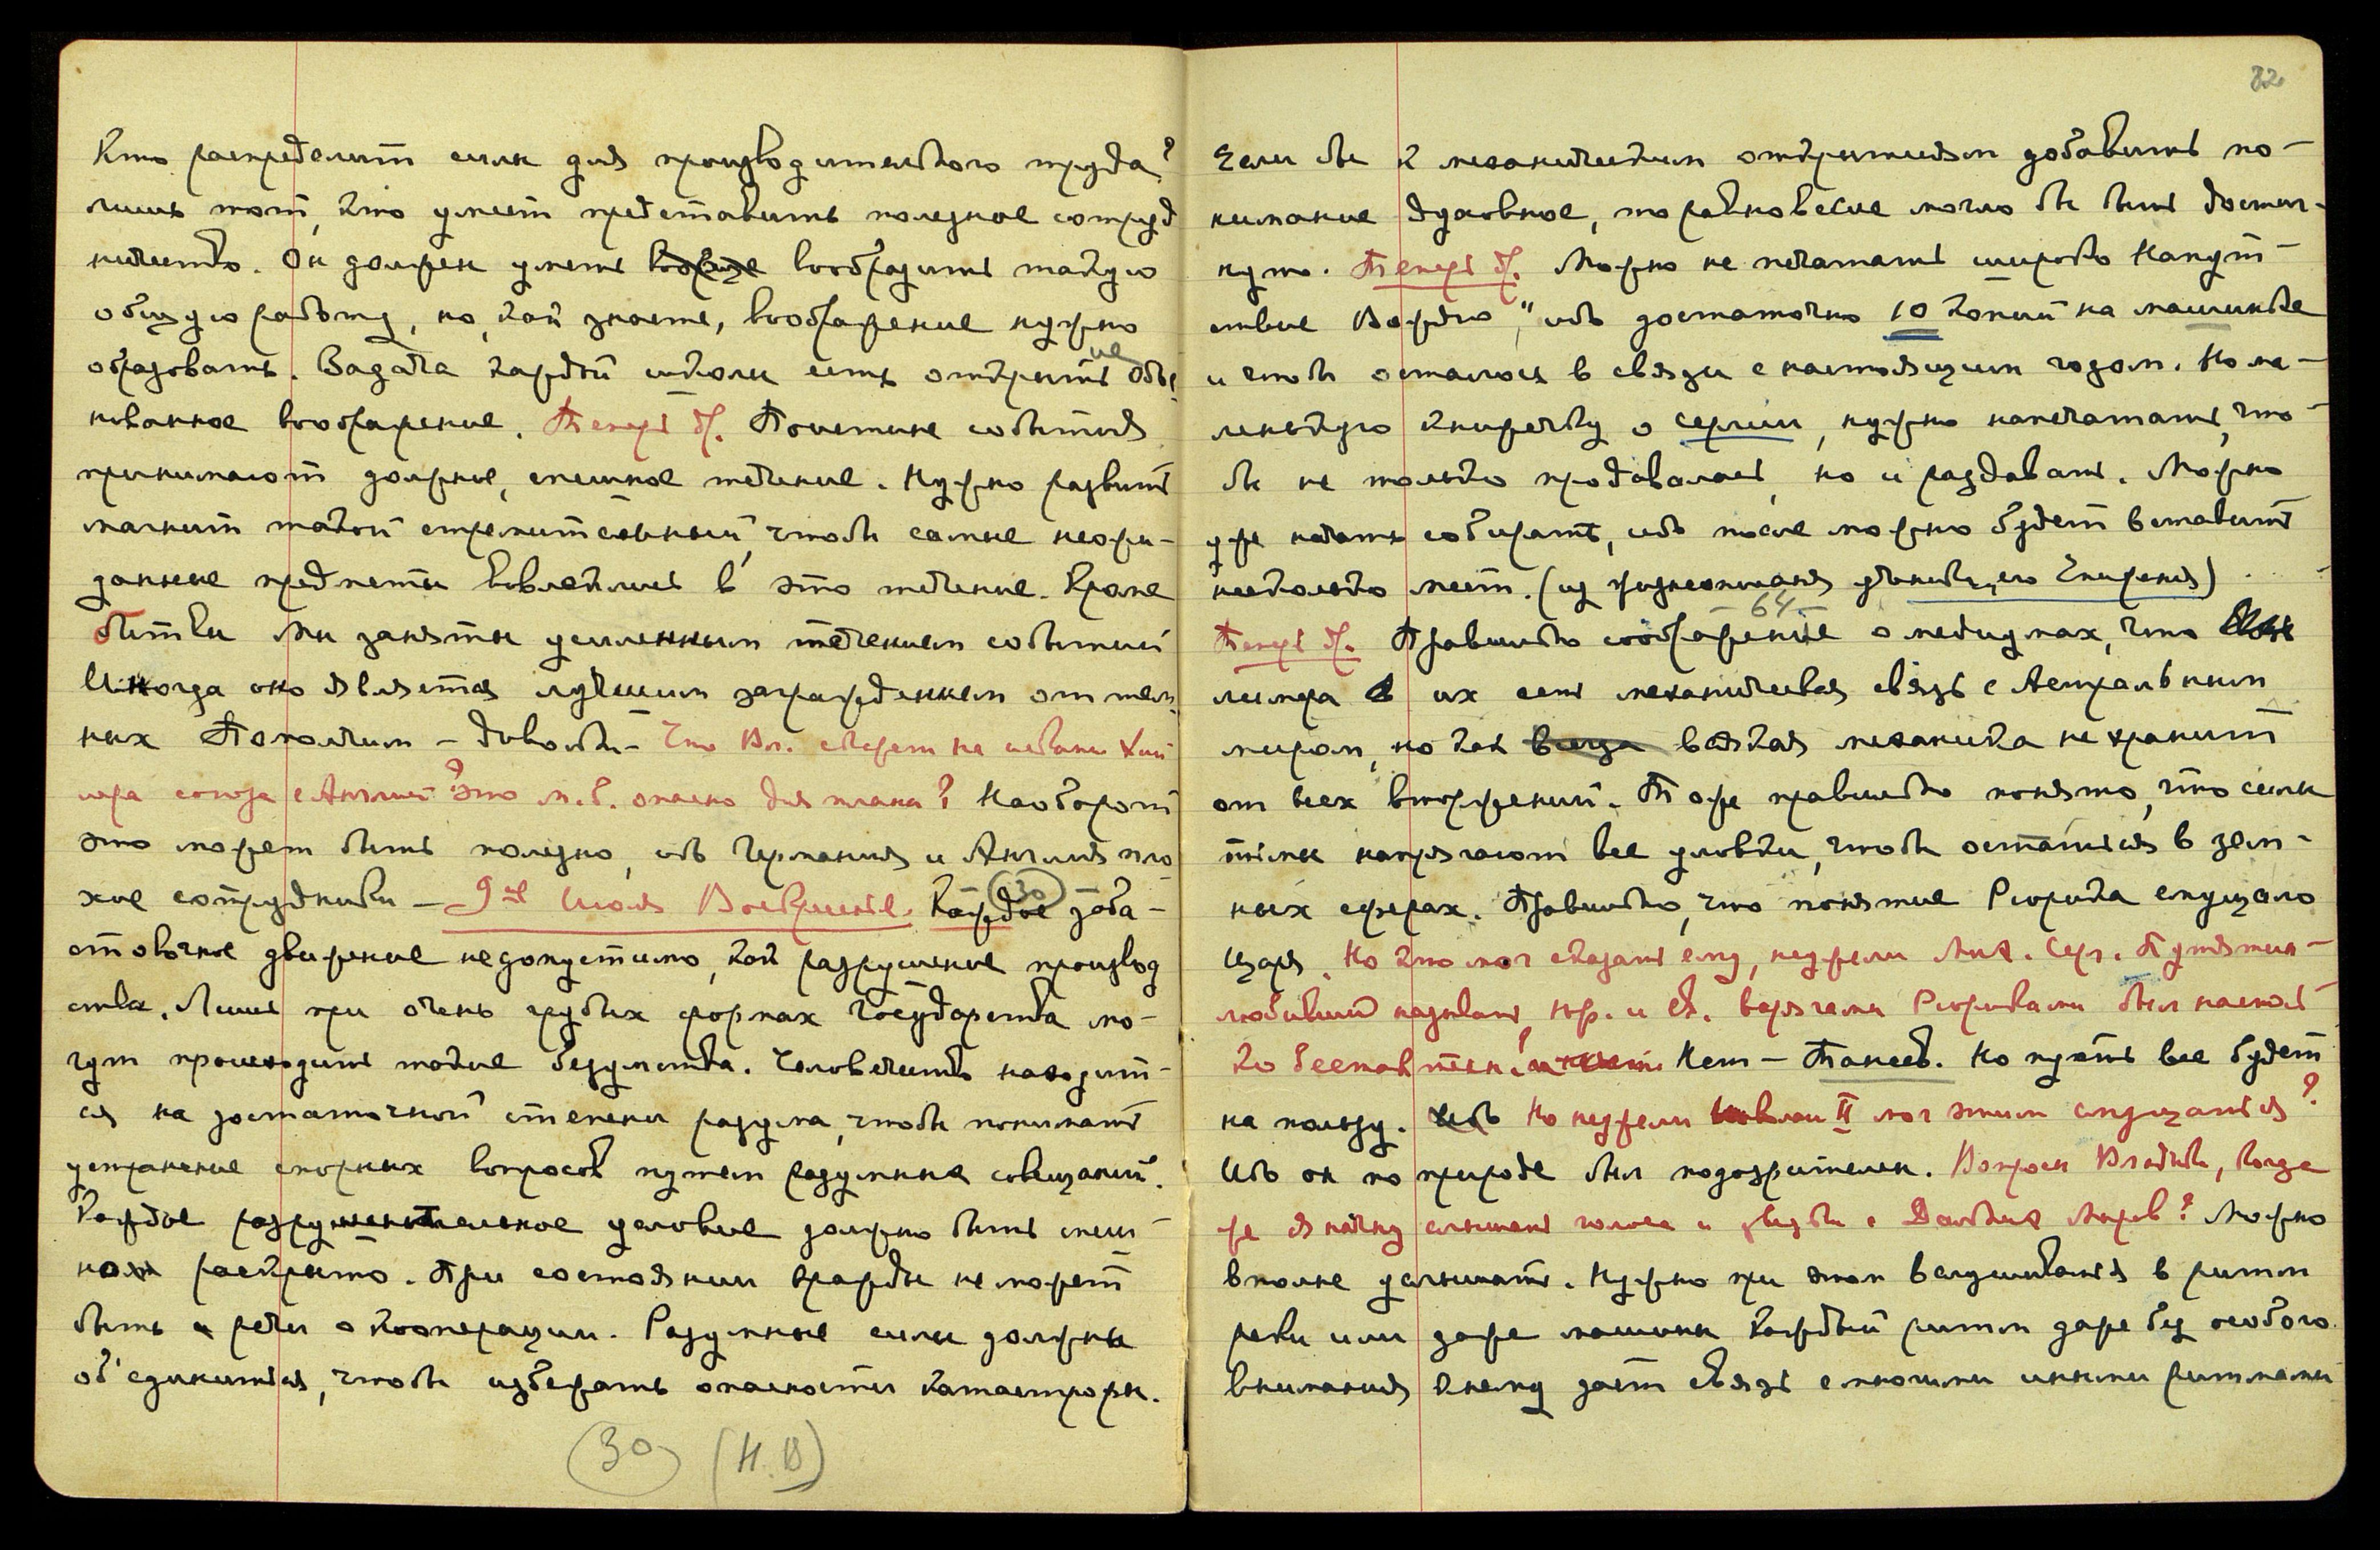 Кто распределит силы для производительного труда?
лишь тот, кто умеет представить полезное сотруд
ничество. Он должен уметь вообще вообразить такую
общую работу, но, как знаете, воображение нужно
образовать. Задача каждой школы есть открыть
нованное воображение. Теперь др. Поистине события
принимают должное, спешное течение. Нужно развить
магнит такой стремительный, чтобы самые неожи-
данные предметы вовлекались в это течение. Кроме
битвы Мы заняты усиленным течением событий
Иногда оно является лучшим заграждением от тем
ных Помолчим – довольно – Что Вл. скажет на
союза с Англией? Это м.б. опасно для плана? Наоборот
это может быть полезно, ибо Германия и Англия пло
хие сотрудники – 9ое Июля Воскресенье. Каждое заба-
30
стовочное движение недопустимо, как разрушение производ
ства. Лишь при очень грубых формах Государства мо-
гут происходить такие безумства. Человечество находит-
ся на достаточной степени разума, чтобы понимать
устранение спорных вопросов путем разумных совещаний.
Каждое разрушительное условие должно быть
раскрыто. При состоянии вражды не может
быть и речи о кооперации. Разумные силы должны
об'единиться, чтобы избежать опасности катастрофы.
30 (Н.В)
82
Если бы к механическим открытиям добавить по-
нимание духовное, то равновесие могло бы быть достиг-
нуто. Теперь др. Можно не печатать широко Напут-
ствие Вождю", ибо достаточно 10 копий на машинке
и чтобы осталось в связи с настоящим годом. Но ма-
ленькую книжечку о Сергии, нужно напечатать, что
бы не только продавалась, но и раздавать. Можно
уже начать собирать, ибо после можно будет вставить
несколько мест. (из жизнеописания ученика его Епифания)
– 64 –
Теперь др. Правильно соображение о медиумах, что
лимфа их есть механическая связь с Астральным
миром, но как всегда всякая механика не хранит
от всех вторжений. Тоже правильно понято, что силы
тьмы напрягают все уловки, чтобы остаться в зем-
ных сферах. Правильно, что понятие Рюрика смущало
Царя. Но кто мог сказать ему, неужели Мих. Серг. Путятин
любивший называть Юр. и Св. варягами Рюриками был настоль
ко бестактен? Нет – Танеев. Но пусть все будет
на пользу. Ибо Но неужели Николай II мог этим смущаться?
Ибо он по природе был подозрителен. Вопросы Владыке, когда
же я начну слышать голоса и звуки с Дальних Миров? Можно
вполне услышать. Нужно при этом вслушиваться в ритм
реки или даже машины каждый ритм даже без особого
внимания к нему дает связь с многими иными ритмами